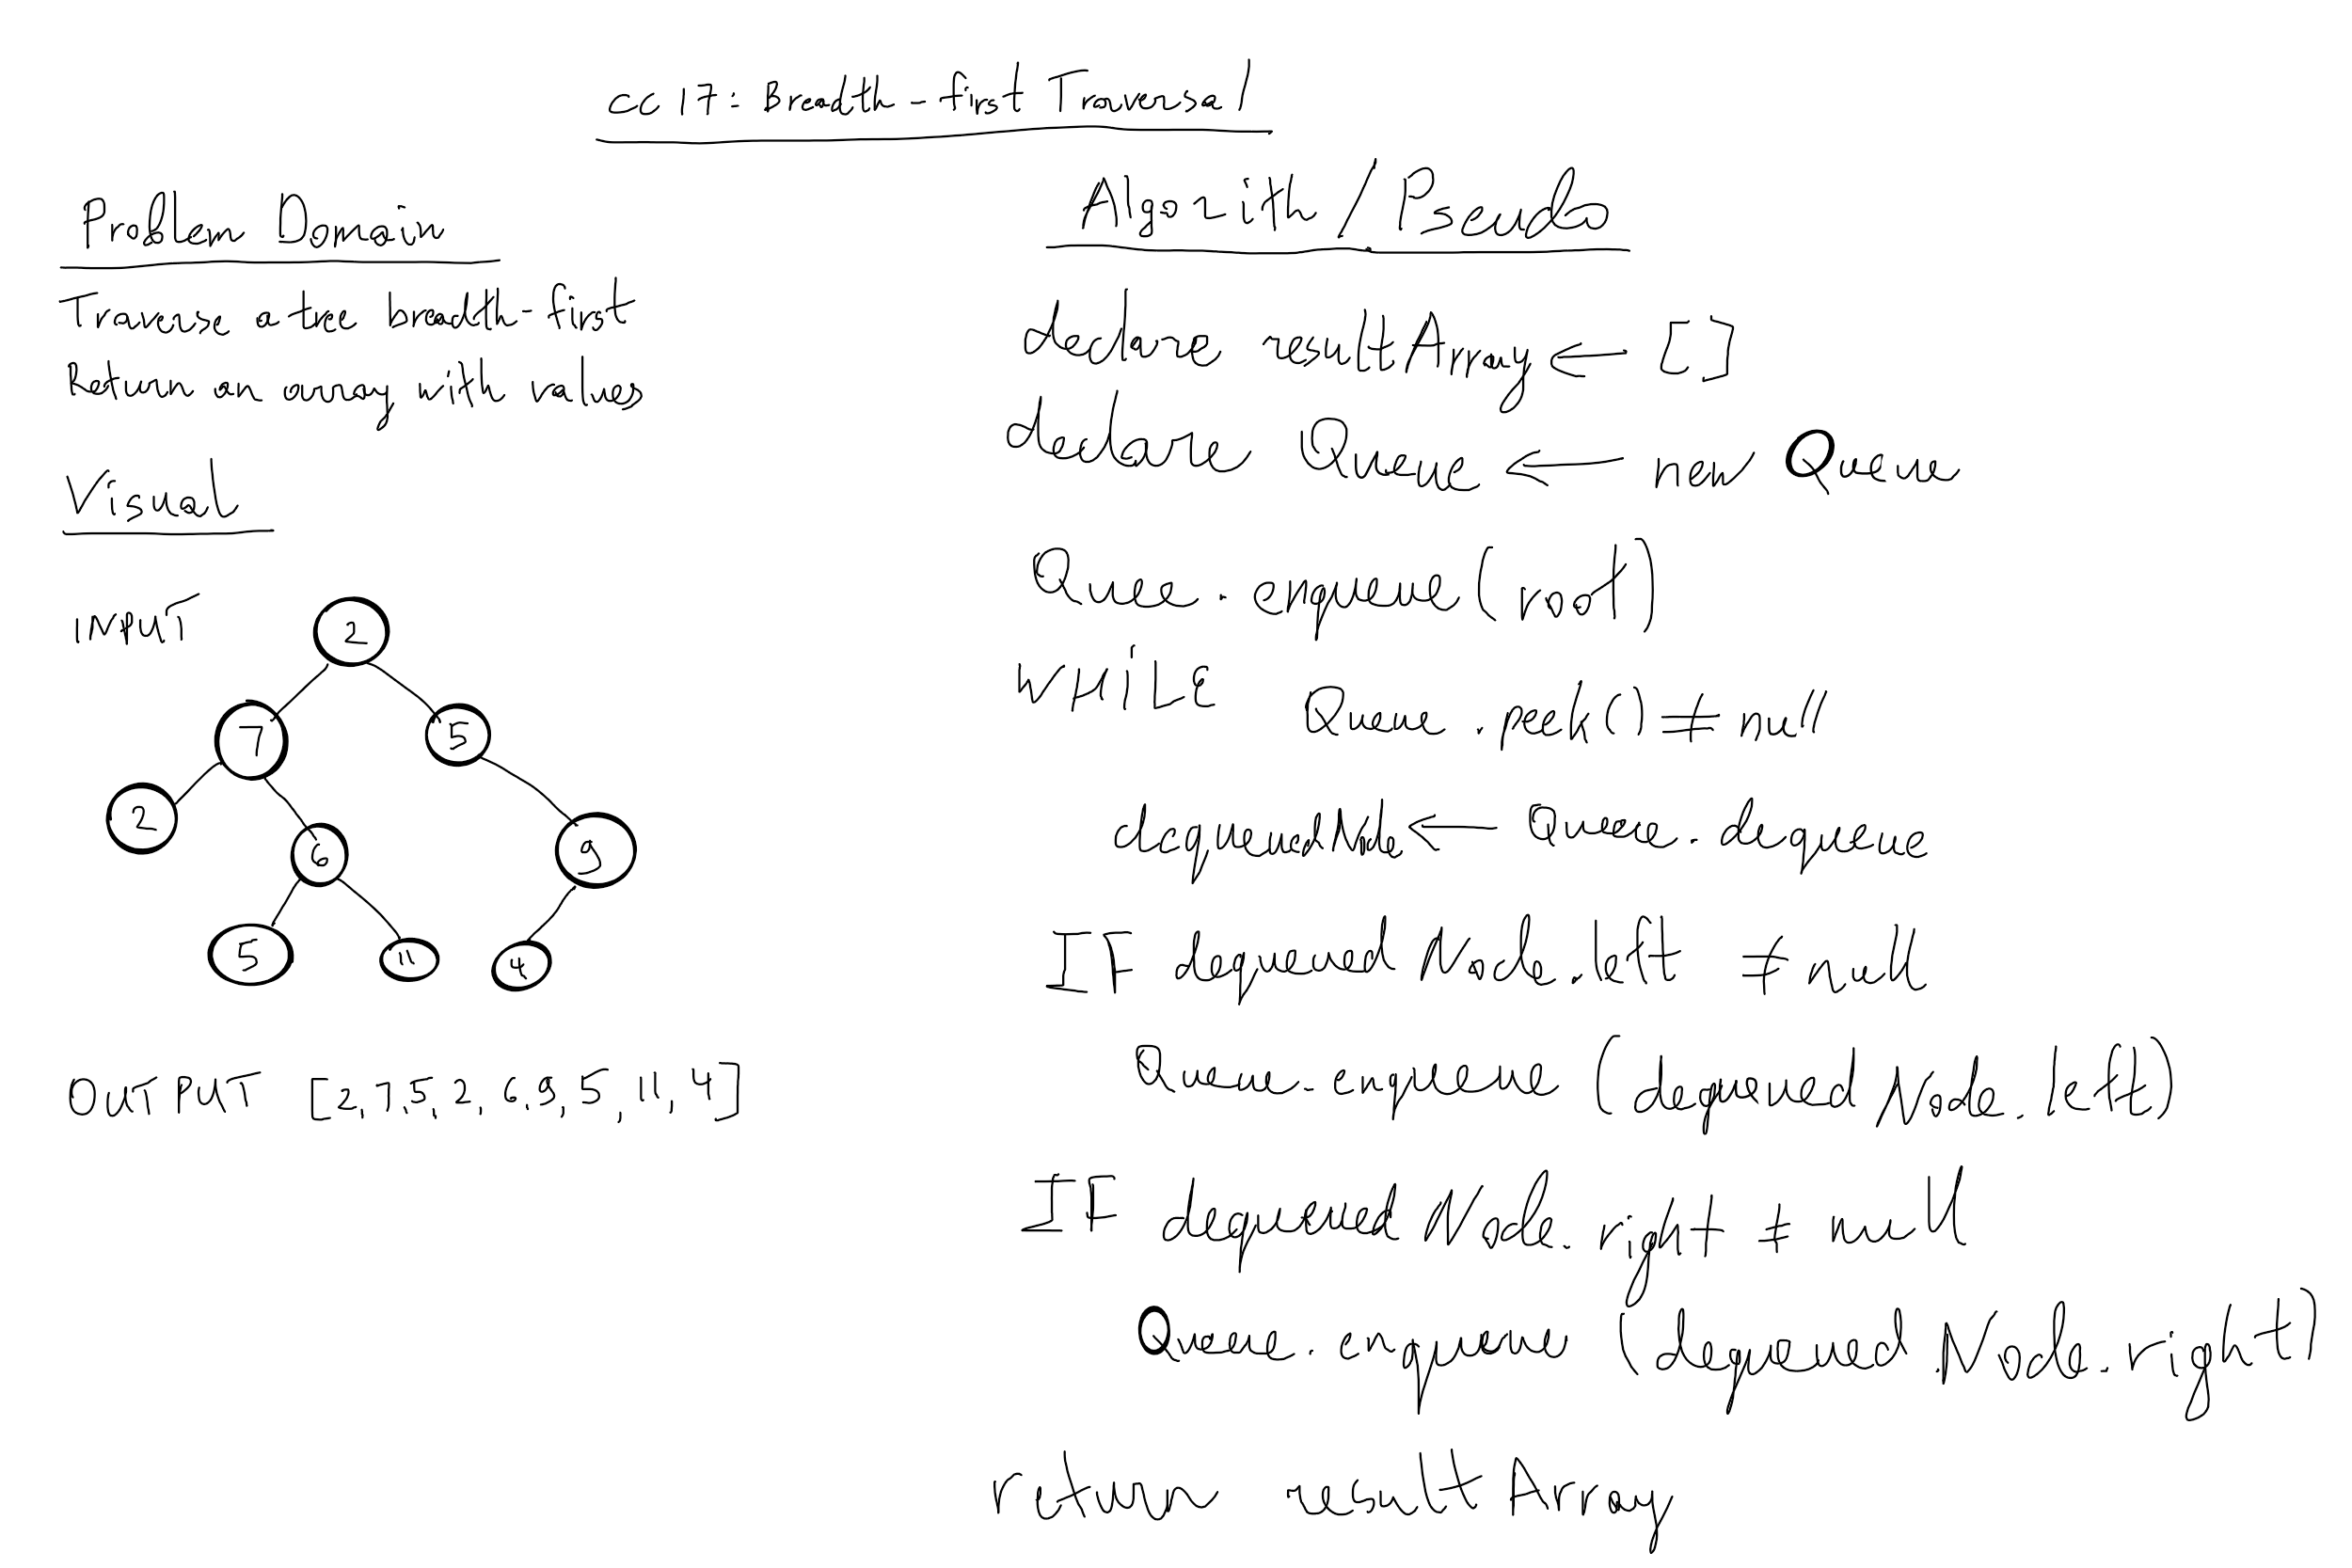 CC 17: Breadth-first Traversal
Problem Domain
Traverse a tree breadth-first
Return an array with values
Visual
INPUT
2
7
5
2
6
9
5
11
4
OUTPUT [2,7,5,2,6,9,5,11,4]
Algorith/Pseudo
declare resultArray ← []
declare Queue ← new Queue
Quee.enqueue(root)
WHILE Queue.peek() ≠ null
dequeuedNode ← Queue.dequeue
IF dequeued Node.left ≠ null
Queue.enqueue (dequeued Node.left)
IF dequeued Node.right ≠ null
Queue.enqueue (dequeued.Node.right)
return resultArray